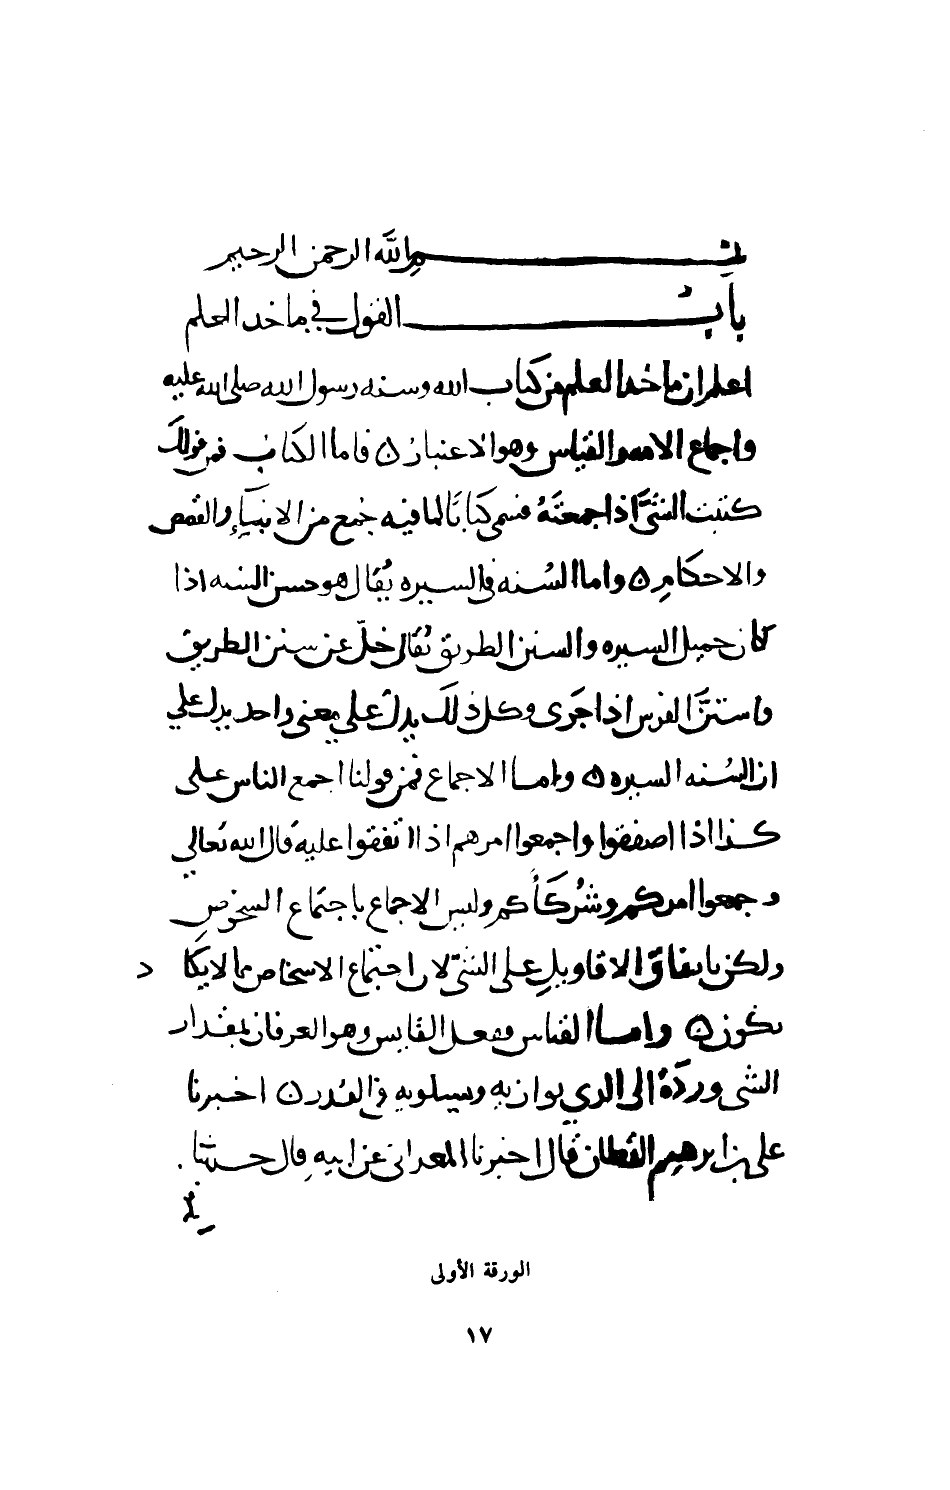 بسم الله الرحمن الرحيم
باب القول في ماخد العلم
اعلم ان ماخد العلم من كتاب الله وسنه رسول الله صلى الله عليه
واجماع الامه والقياس وهو الاعتبار ه فاما الكتاب فمن قولك
كتبت الشئ اذا جمعته فسمى كتابا لما فيه جمع من الانبياء والقصص
والاحكام ه واما السنه فالسيره يقال هو حسن السنه اذا
كان جميل السيره والسنن الطريق يقال خل عن سنن الطريق
واستن الفرس اذا جرى وكل ذلك يدل على معنى واحد يدل على
ان السنه السيره ه واما الاجماع فمن قولنا اجمع الناس على
كذا اذا اصفقوا واجمعوا امرهم اذا اتفقوا عليه قال الله تعالى
وجمعوا امركم وشركاكم وليس الاجماع باجتماع الشخوص
ولكن باتفاق الاقاويل على الشئ لان اجتماع الاشخاص مما لا يكاد
يكون ه واما القياس ففعل القايس وهو العرفان بمقدار
الشى ورده الى الذي يوازيه ويساويه في القدر ه اخبرنا
على بن ابرهيم القطان قال اخبرنا المعداني عن ابيه قال حدثنا
الورقة الأولى
١٧